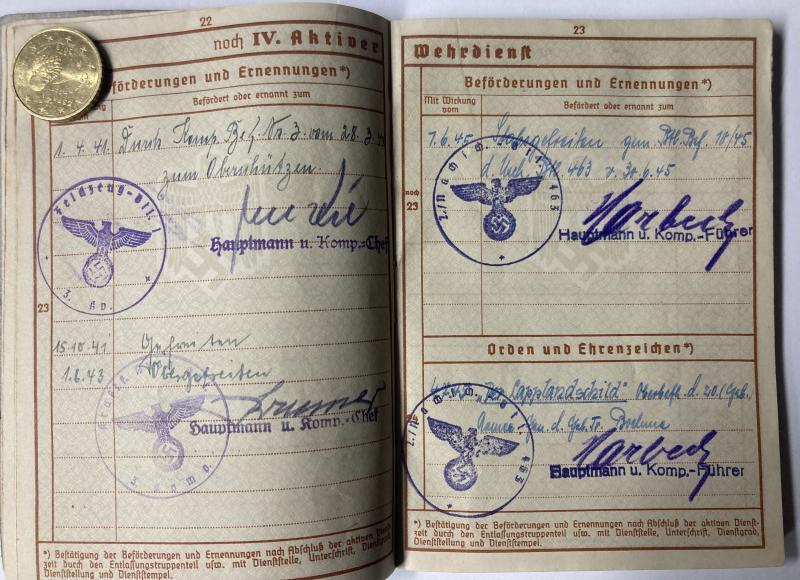 22
noch IV. Aktiver
Beförderungen und Ernennungen*)
Befördert oder ernannt zum
vom
1. 4. 41. Durch Komp. Bef. Nr. 3 vom 28. 3.
zum Oberschützen
Hauptmann u. Komp.-Chef
Feldzeug-Btl. 1
3. Kp.
23
15.10.41 Gefreiten
1.6.43 Obergefreiten
Hauptmann u. Komp.-Chef
3. Komp.
*) Bestätigung der Beförderungen und Ernennungen nach Abschluß der aktiven Dienst-
zeit durch den Entlassungstruppenteil usw. mit Unterschrift, Dienstgrad,
Dienststellung und Dienststempel.
23
Wehrdienst
Beförderungen und Ernennungen*)
Mit Wirkung
vom
Befördert oder ernannt zum
7.6.45 Stabsgefreiten gem. Btl. Bef. 10/45
463 v. 30.6.45
noch
23
Hauptmann u. Komp.-Führer
463
Orden und Ehrenzeichen*)
"Der Lapplandschild" d. 20. Geb.
Armee
Hauptmann u. Komp.-Führer
463
*) Bestätigung der Beförderungen und Ernennungen nach Abschluß der aktiven Dienst-
zeit durch den Entlassungstruppenteil usw. mit Unterschrift, Dienstgrad,
Dienststellung und Dienststempel.